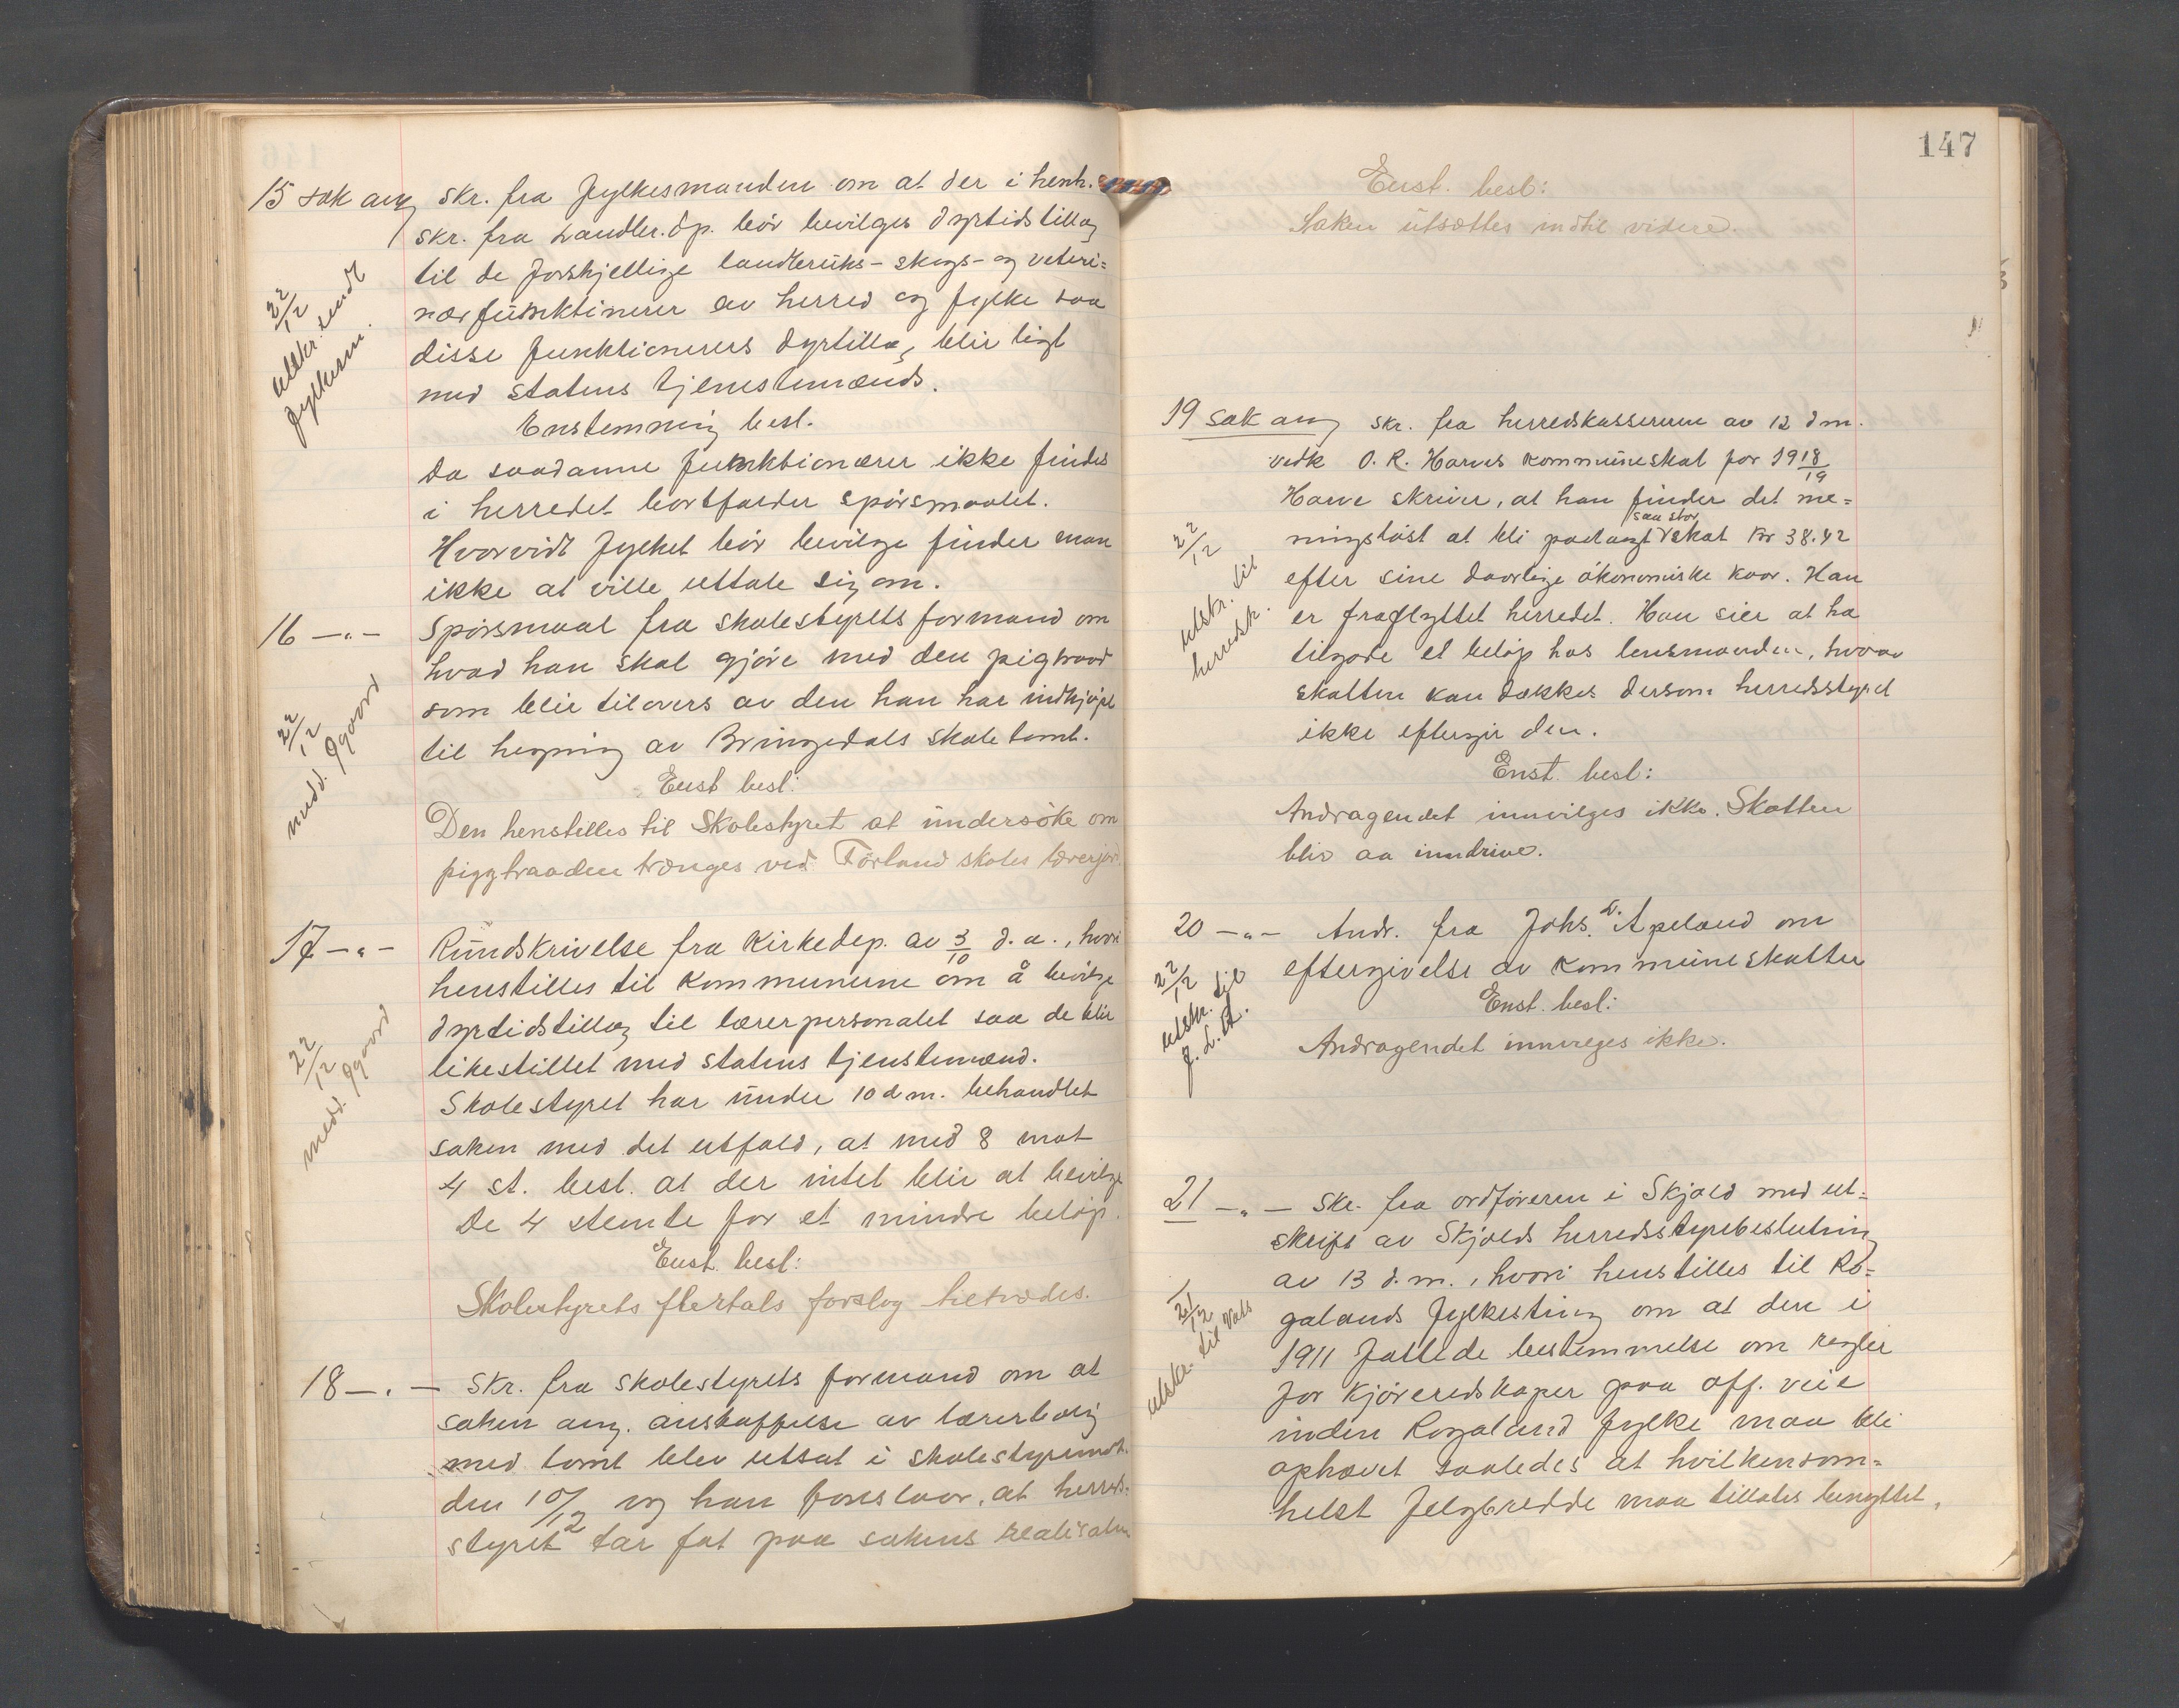 15 sak ang skr. fra Fylkesmanden om at der i henh.
skr. fra Landbr.dp. bör bevilges dyrtidstillæg
til de forskjellige landbruks- skogs- og veteri=
nærfunktinerer av herred og fylke saa
disse funktionerers dyrtillæg blir ligt
med statens tjenestemænds.
22/12 utskr. sendt fylkesm.
Enstemmig besl.
Da saadanne funktionærer ikke findes
i herredet bortfalder spörsmaalet.
Hvorvidt fylket bör bevilge finder man
ikke at ville uttale sig om.
16 -"- Spörsmaal fra skolestyrets formand om
hvad han skal gjöre med den pigtraad
som blir tilovers av den han har indkjöpt
til hegning av Bringedals skoletomt.
22/12 medd.
Enst besl:
Den henstilles til Skolestyret at undersöke om
piggtraaden trænges ved Förland skoles lærerjord.
17 -"- Rundskrivelse fra Kirkedep. av 3/10 d.a., hvori
henstilles til kommunerne om å bevilge
dyrtidstillæg til lærerpersonalet saa de blir
likestillet med statens tjenstemænd.
Skolestyret har under 10 dm. behandlet
saken med det utfald, at med 8 mot
4 st. besl. at der intet blir at bevilge
De 4 stemte for et mindre belöp.
22/12 medd.
Enst. besl:
Skolestyrets flertals forslag tiltrædes.
18 -"- Skr. fra skolestyrets formand om at
saken ang. anskaffelse av lærerbolig
med tomt blev utsat i skolestyremöt.
den 10/12 og han foreslaar, at herreds=
styret tar fat paa sakens realisation
147
Enst. besl:
Saken utsættes indtil videre.
19 sak ang skr. fra herredskassereren av 12 dm.
vedk O. R. Harves kommuneskat for 1918/19
Harve skriver, at han finder det me=
ningslöst at bli paalagt saa stor skat kr 38.42
efter sine daarlige ökonomiske kaar. Han
er fraflyttet herredet. Han sier at ha
tilgode et belöp hos lensmanden, hvorav
skatten kan dækkes dersom herredsstyret
ikke eftergir den.
22/12 utskr. til herredsk.
Enst. besl:
Andragendet innvilges ikke. Skatten
blir aa inndrive.
20 -"- Andr. fra Johs. L. Apeland om
eftergivelse av kommuneskatten
22/12 utskr. til J. L. A.
Enst. besl:
Andragendet innvilges ikke.
21 -"- Skr. fra ordföreren i Skjold med ut=
skrift av Skjolds herredsstyrebeslutning
av 13 d.m., hvori henstilles til Ro=
galands fylkesting om at den i
1911 fattede bestemmelse om regler
for kjöreredskaper paa off. veie
inden Rogaland fylke maa bli
ophævet saaledes at hvilkensom=
helst felgbredde maa tillates benyttet.
21/12 utskr. til Vats